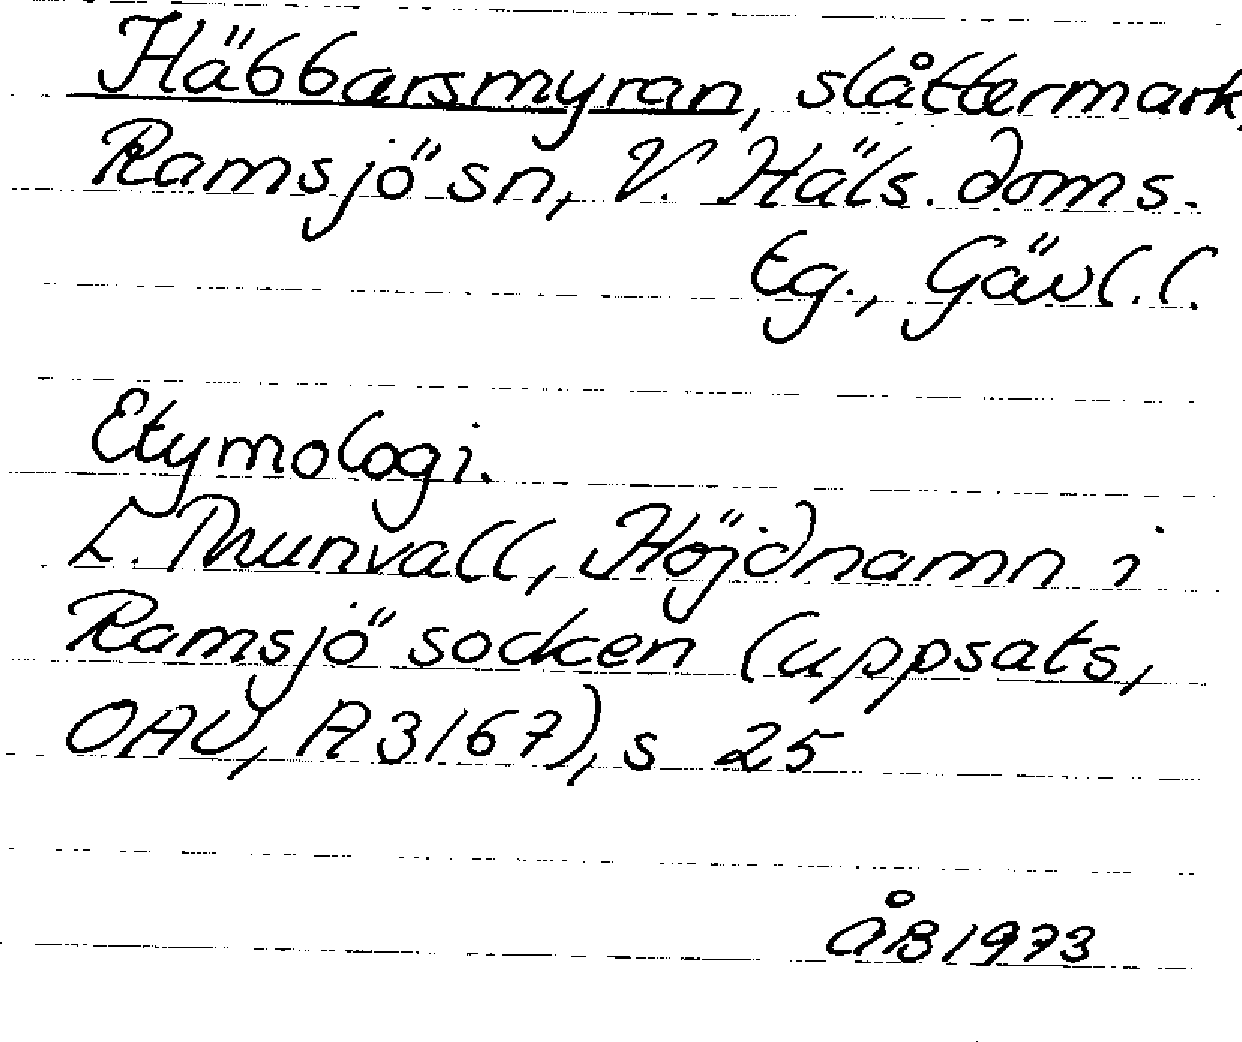 Häbbarsmyran, slåttermark,
Ramsjö sn, V. Häls. doms.
Eg., Gävl.l.
Etymologi.
L. Thunvall, Höjdnamn i
Ramsjö socken (uppsats,
OAU, A3167), s 25
ÅB 1973